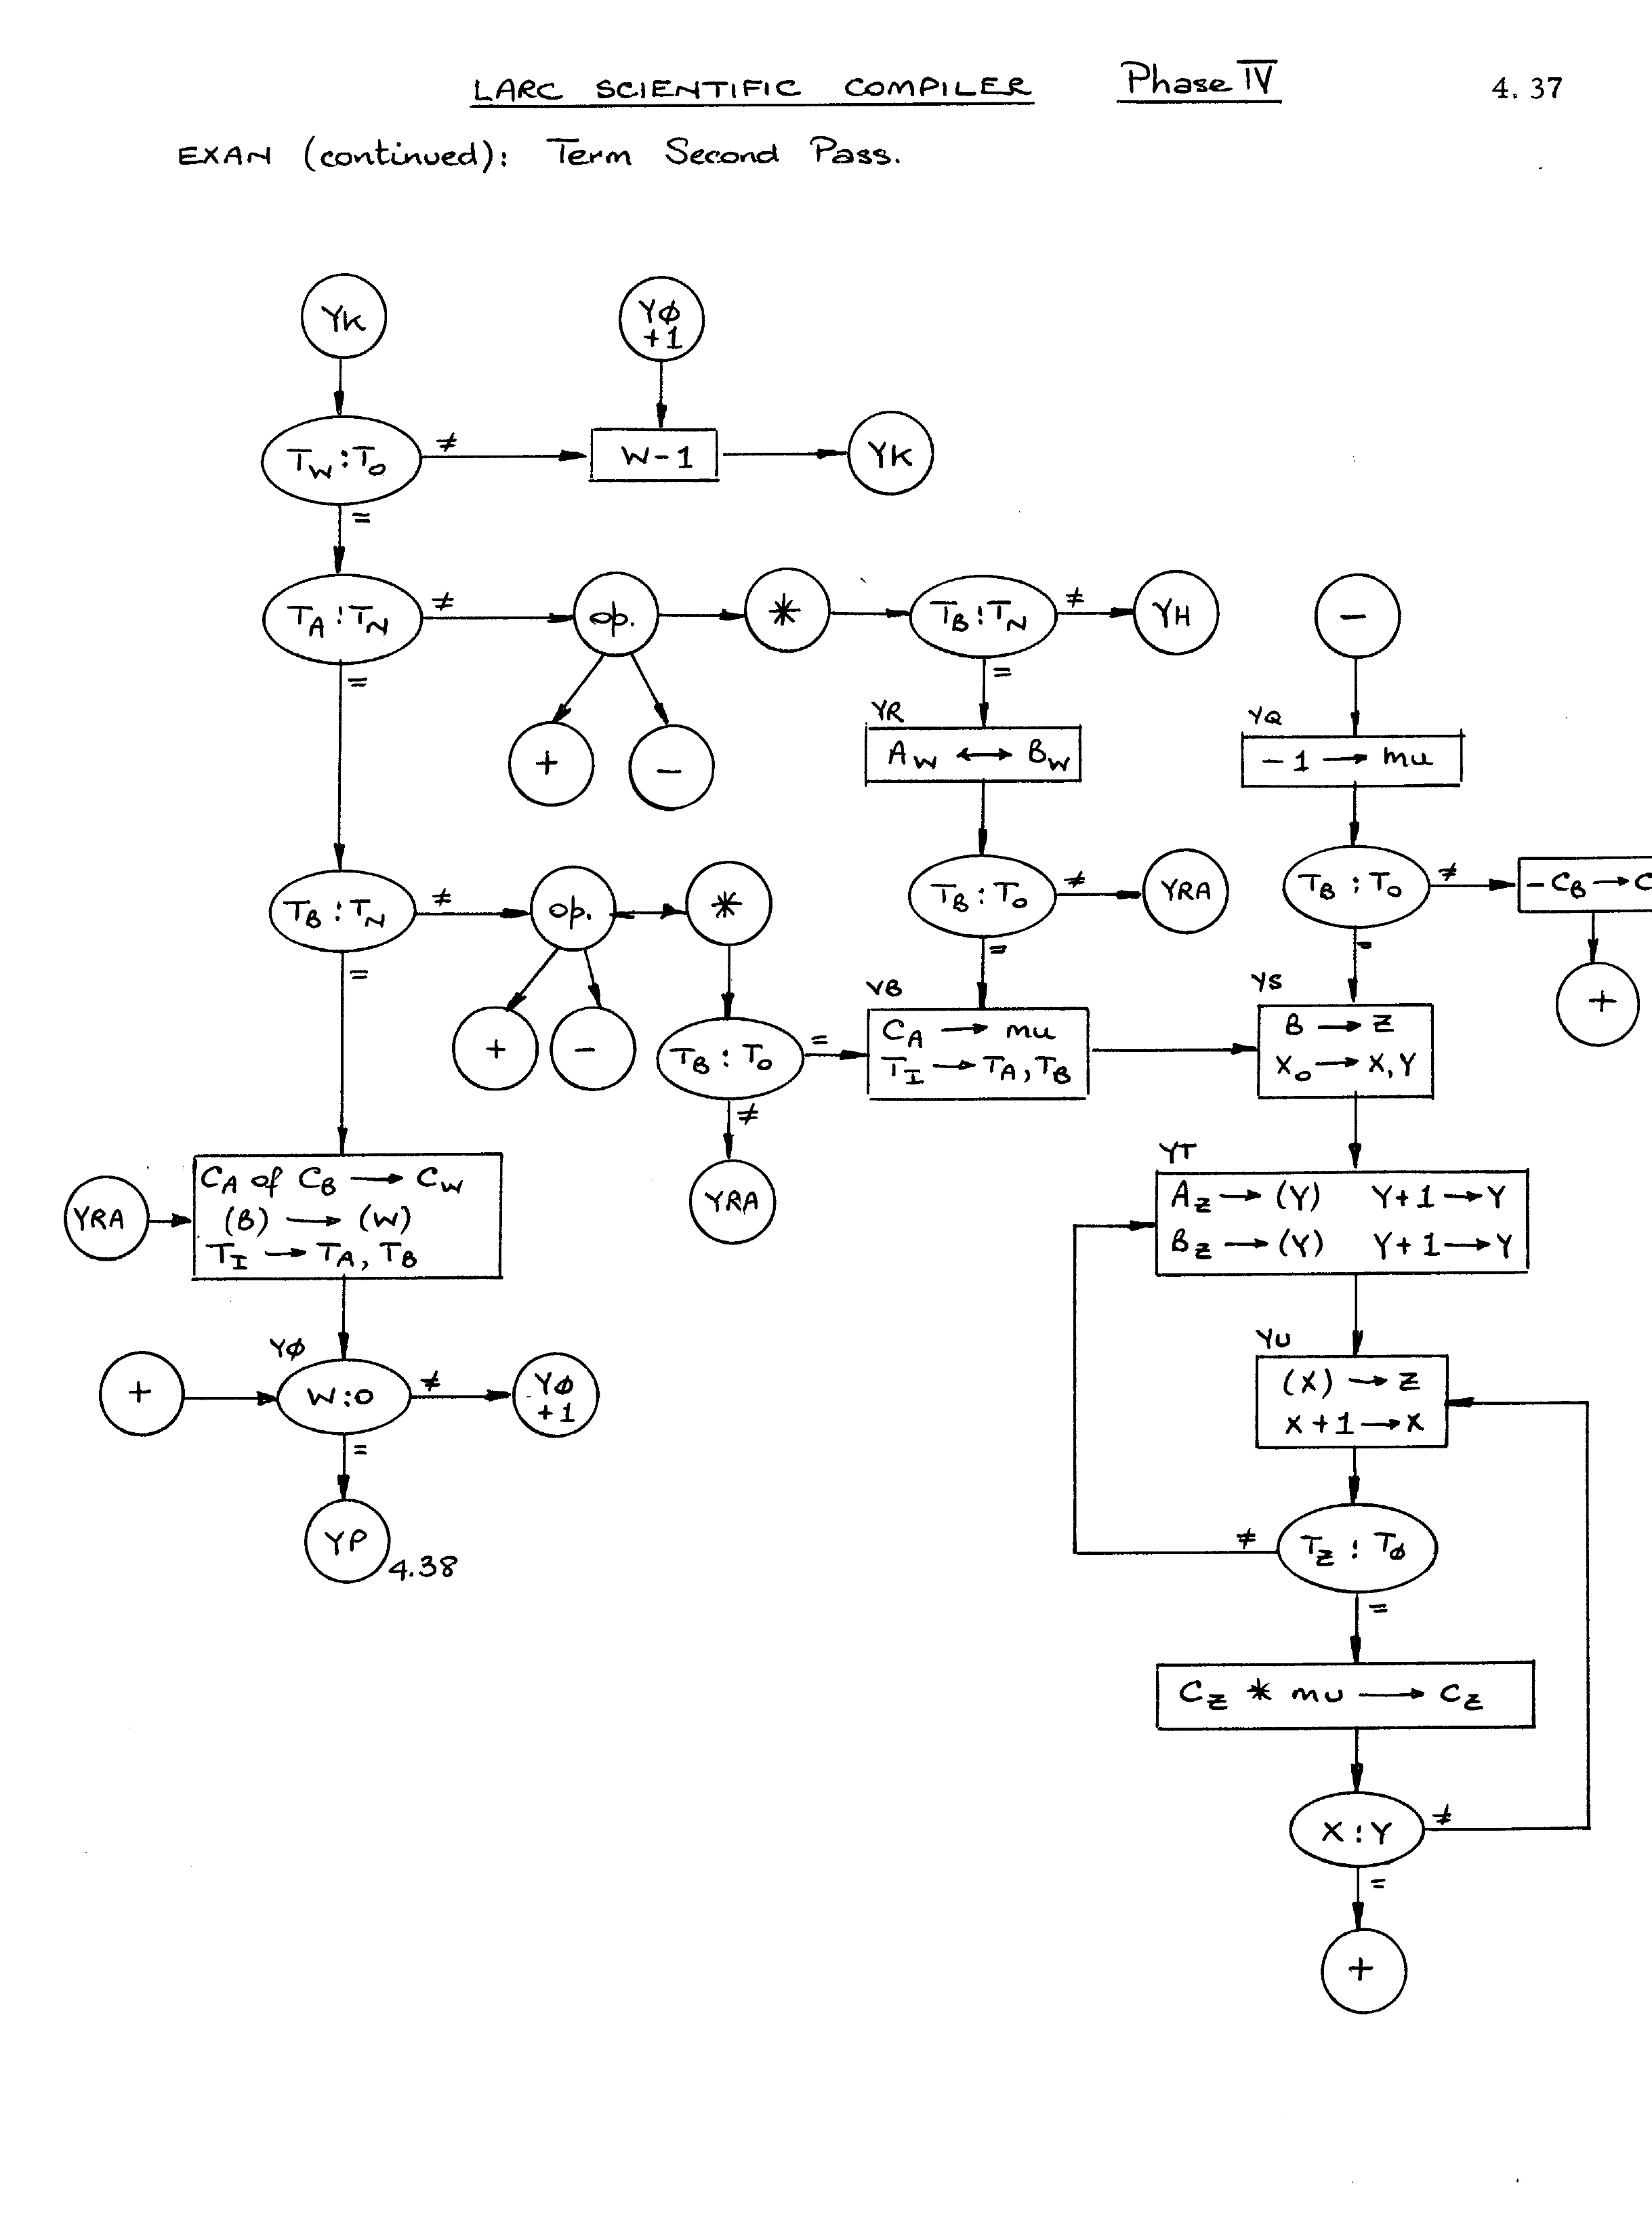 LARC SCIENTIFIC COMPILER Phase IV 4.37
EXAN (continued): Term Second Pass.
YK
YØ
+1
T_W : T_O
≠
W-1
YK
=
T_A : T_N
≠
op.
*
T_B : T_N
≠
YH
-
=
+
-
=
YR
A_W ↔ B_W
YQ
-1 → mu
T_B : T_N
≠
op.
*
T_B : T_O
≠
YRA
T_B : T_O
≠
-C_B → C
=
+
-
=
=
+
T_B : T_O
=
VB
C_A → mu
T_I → T_A, T_B
YS
B → Z
X_O → X, Y
≠
YRA
YRA
C_A of C_B → C_W
(B) → (W)
T_I → T_A, T_B
YT
A_Z → (Y) Y+1 → Y
B_Z → (Y) Y+1 → Y
+
YØ
W:0
≠
YØ
+1
=
YP
4.38
YU
(X) → Z
X+1 → X
≠
T_Z : T_Ø
=
C_Z * mu → C_Z
X : Y
≠
=
+